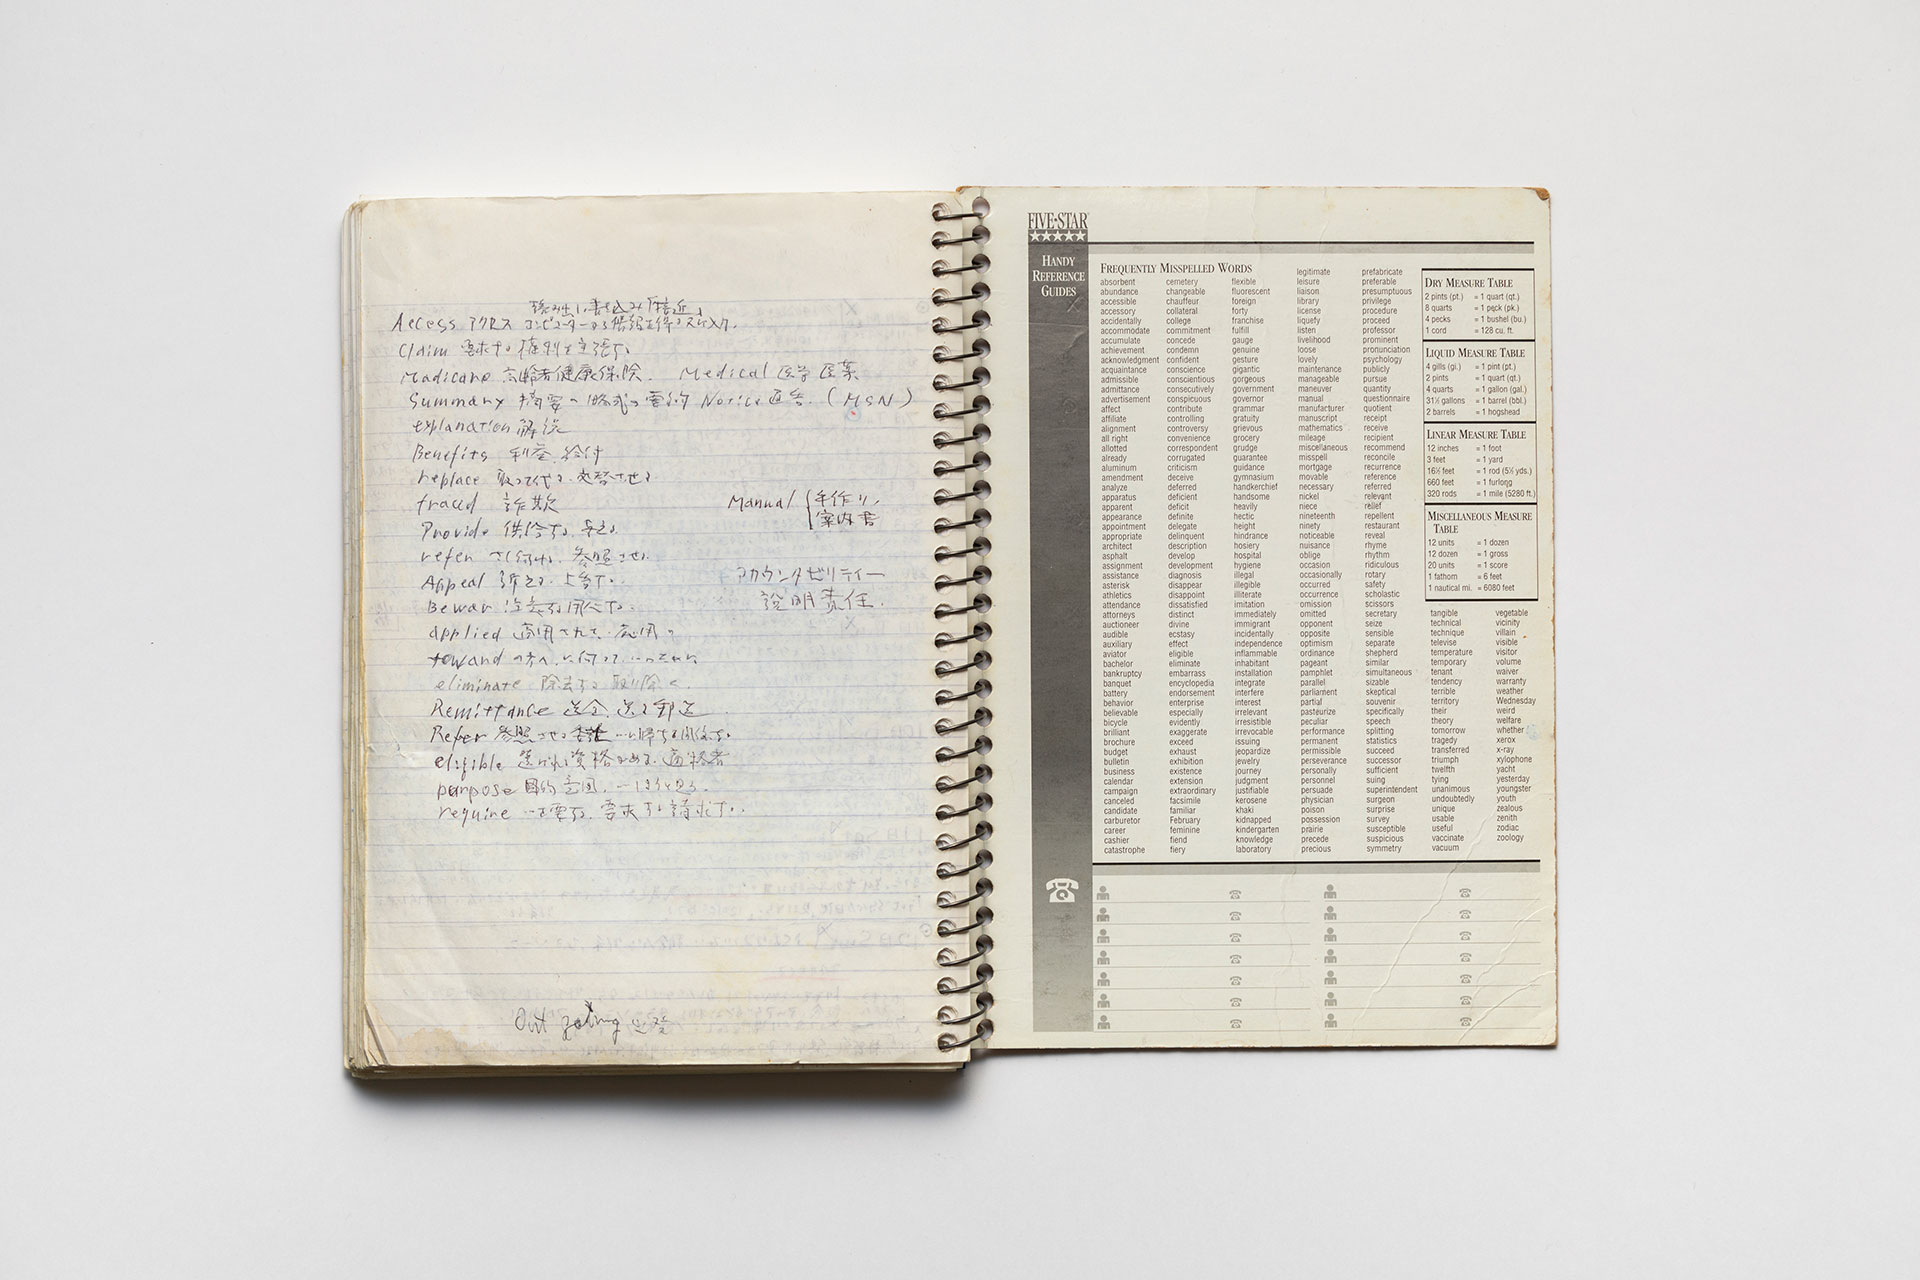 読み出し書き込み「接近」
Access アクセス コンピューターから情報を得る
Claim 要求する 権利を主張する
Madicare 高齢者健康保険. Medical 医学 医薬
Summary 摘要 略式の 要約 Notice 通告. (MSN)
explanation 解説
Benefits 利益. 給付
replace 取って代る. 交替させる
fraud 詐欺
Manual 手作り,
案内書
Provide 供給する. 与える
refer 参照させる.
Appeal 訴える. 上告する.
アカウンタビリティー
説明責任.
Bewar 注意する 用心する.
applied 適用された. 応用の
toward の方へ. に向って.
eliminate 除去する 取り除く.
Remittance 送金. 送る 郵送
Refer 参照させる
eligible 選ばれる資格がある. 適格者
purpose 目的 意図.
require を要する. 要求する 請求する.
Out going 出発
FIVE★STAR
HANDY
REFERENCE
GUIDES
FREQUENTLY MISSPELLED WORDS
absorbent
abundance
accessible
accessory
accidentally
accommodate
accumulate
achievement
acknowledgment
acquaintance
admissible
admittance
advertisement
affect
affiliate
alignment
all right
allotted
already
aluminum
amendment
analyze
apparatus
apparent
appearance
appointment
appropriate
architect
asphalt
assignment
assistance
asterisk
athletics
attendance
attorneys
auctioneer
audible
auxiliary
aviator
bachelor
bankruptcy
banquet
battery
behavior
believable
bicycle
brilliant
brochure
budget
bulletin
business
calendar
campaign
canceled
candidate
carburetor
career
cashier
catastrophe
cemetery
changeable
chauffeur
collateral
college
commitment
concede
condemn
confident
conscience
conscientious
consecutively
conspicuous
contribute
controlling
controversy
convenience
correspondent
corrugated
criticism
deceive
deferred
deficient
deficit
definite
delegate
delinquent
description
develop
development
diagnosis
disappear
disappoint
dissatisfied
distinct
divine
ecstasy
effect
eligible
eliminate
embarrass
encyclopedia
endorsement
enterprise
especially
evidently
exceed
exhaust
exhibition
existence
extension
extraordinary
facsimile
familiar
February
feminine
fiend
fiery
flexible
fluorescent
foreign
forty
franchise
fulfill
gauge
genuine
gesture
gigantic
gorgeous
government
governor
grammar
gratuity
grievous
grocery
grudge
guarantee
guidance
gymnasium
handkerchief
handsome
heavily
hectic
height
hindrance
hosiery
hospital
hygiene
illegal
illegible
illiterate
imitation
immediately
immigrant
incidentally
independence
inflammable
inhabitant
installation
integrate
interfere
interest
irrelevant
irresistible
irrevocable
issuing
jeopardize
jewelry
journey
judgment
justifiable
kerosene
khaki
kidnapped
kindergarten
knowledge
laboratory
legitimate
leisure
liaison
library
license
liquefy
listen
livelihood
loose
lovely
maintenance
manageable
maneuver
manual
manufacturer
manuscript
mathematics
mileage
miscellaneous
misspell
mortgage
movable
necessary
nickel
niece
nineteenth
ninety
noticeable
nuisance
oblige
occasion
occasionally
occurred
occurrence
omission
omitted
opponent
opposite
optimism
ordinance
pageant
pamphlet
parallel
parliament
partial
pasteurize
peculiar
performance
permanent
permissible
perseverance
personally
personnel
persuade
physician
poison
possession
prairie
precede
precious
prefabricate
preferable
presumptuous
privilege
procedure
proceed
professor
prominent
pronunciation
psychology
publicly
pursue
quantity
questionnaire
quotient
receipt
receive
recipient
recommend
reconcile
recurrence
reference
referred
relevant
relief
repellent
restaurant
reveal
rhyme
rhythm
ridiculous
rotary
safety
scholastic
scissors
secretary
seize
sensible
separate
shepherd
similar
simultaneous
sizable
skeptical
souvenir
specifically
speech
splitting
statistics
succeed
successor
sufficient
suing
superintendent
surgeon
surprise
survey
susceptible
suspicious
symmetry
tangible
technical
technique
televise
temperature
temporary
tenant
tendency
terrible
territory
their
theory
tomorrow
tragedy
transferred
triumph
twelfth
tying
unanimous
undoubtedly
unique
usable
useful
vaccinate
vacuum
vegetable
vicinity
villain
visible
visitor
volume
waiver
warranty
weather
Wednesday
weird
welfare
whether
xerox
x-ray
xylophone
yacht
yesterday
youngster
youth
zealous
zenith
zodiac
zoology
DRY MEASURE TABLE
2 pints (pt.) = 1 quart (qt.)
8 quarts = 1 peck (pk.)
4 pecks = 1 bushel (bu.)
1 cord = 128 cu. ft.
LIQUID MEASURE TABLE
4 gills (gi.) = 1 pint (pt.)
2 pints = 1 quart (qt.)
4 quarts = 1 gallon (gal.)
31½ gallons = 1 barrel (bbl.)
2 barrels = 1 hogshead
LINEAR MEASURE TABLE
12 inches = 1 foot
3 feet = 1 yard
16½ feet = 1 rod (5½ yds.)
660 feet = 1 furlong
320 rods = 1 mile (5280 ft.)
MISCELLANEOUS MEASURE
TABLE
12 units = 1 dozen
12 dozen = 1 gross
20 units = 1 score
1 fathom = 6 feet
1 nautical mi. = 6080 feet